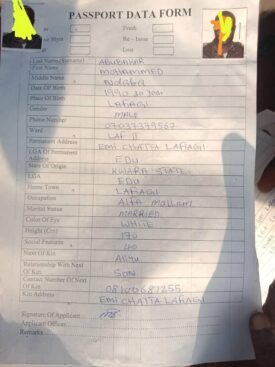 PASSPORT DATA FORM
Fresh
Re - Issue
Lost
Last Name(Surname) ABUBAKAR
First Name MOHAMMED
Middle Name NDAGA
Date Of Birth 1990
Place Of Birth LAFIAGI
Gender MALE
Phone Number 07037379567
Ward LAF II
Permanent Address EMI CHATTA LAFIAGI
LGA Of Permanent Address EDU
State Of Origin KWARA STATE
LGA EDU
Home Town LAFIAGI
Occupation Alfa Mallam
Marital Status MARRIED
Color Of Eye WHITE
Height (Cm) 170
Social Features NO
Next Of Kin Aliyu
Relationship With Next Of Kin SON
Contact Number Of Next Of Kin
Kin Address EMI CHATTA LAFIAGI
Signature Of Applicant
Applicant Officer
Remarks